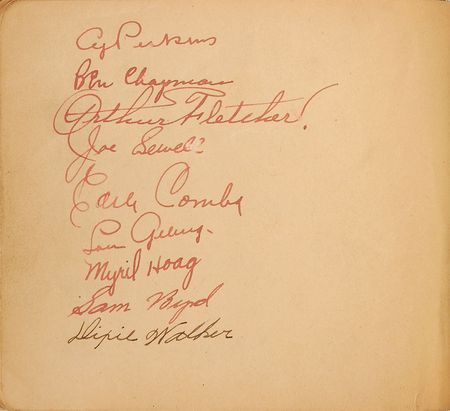 Cy Perkins
Ben Chapman
Arthur Fletcher!
Joe Sewell
Earle Combs
Lou Gehrig
Myril Hoag
Sam Byrd
Dixie Walker